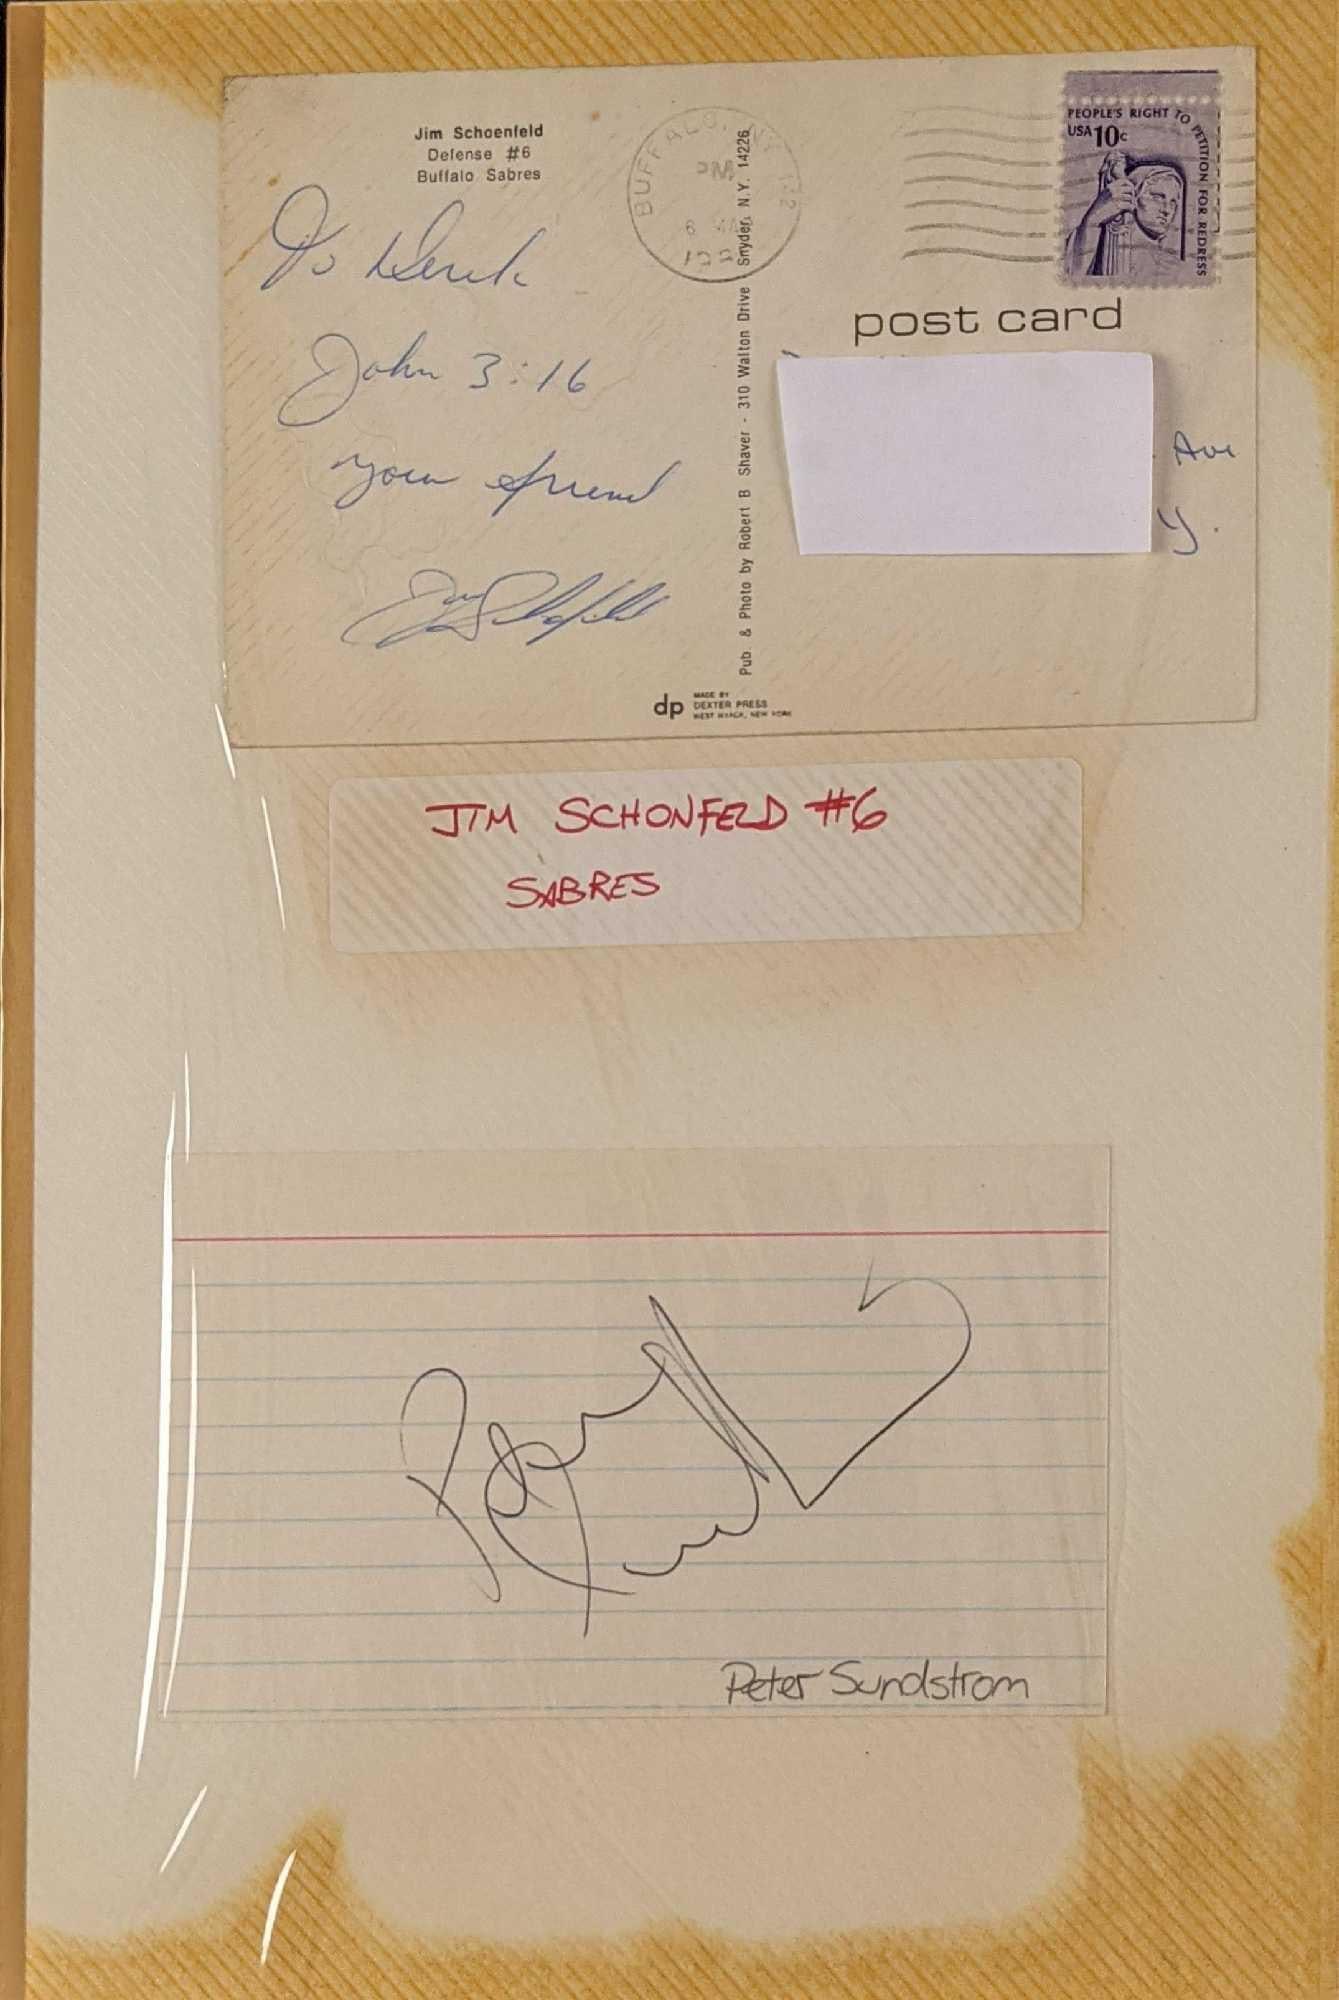 Jim Schoenfeld
Defense #6
Buffalo Sabres
To Derek
John 3:16
Your friend
Jim Schoenfeld
BUFFALO, NY 142
PM
6
PEOPLE'S RIGHT TO PETITION FOR REDRESS
USA 10c
post card
Ave
Y.
Pub. & Photo by Robert B Shaver - 310 Walton Drive Snyder, N.Y. 14226
dp
MADE BY
DEXTER PRESS
WEST NYACK, NEW YORK
JIM SCHONFELD #6
SABRES
Peter Sundstrom